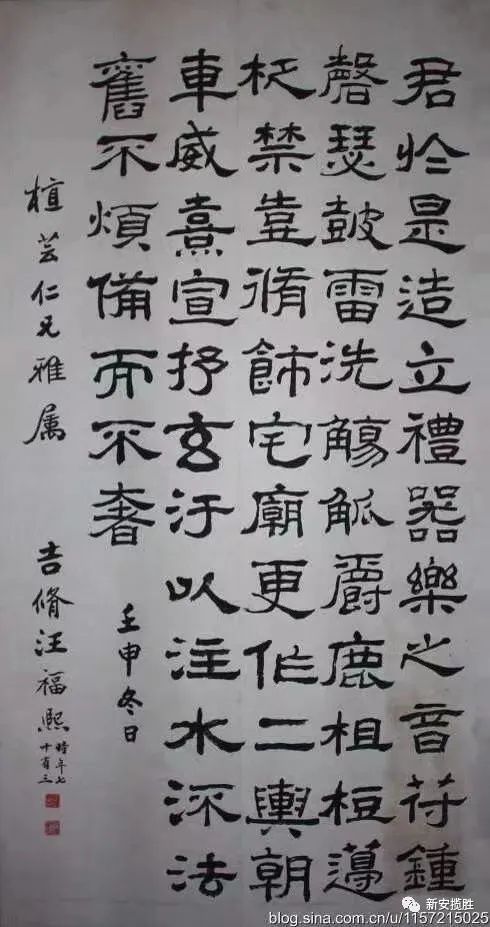 君於是造立禮器樂之音苻鍾
磬瑟鼓雷洗觴觚爵鹿柤梪籩
柉禁壺脩飾宅廟更作二輿朝
車威熹宣抒玄汙以注水流法
舊不煩備而不奢
壬申冬日
植芸仁兄雅属
吉脩汪福熙時年七十有三
新安揽胜
blog.sina.com.cn/u/1157215025